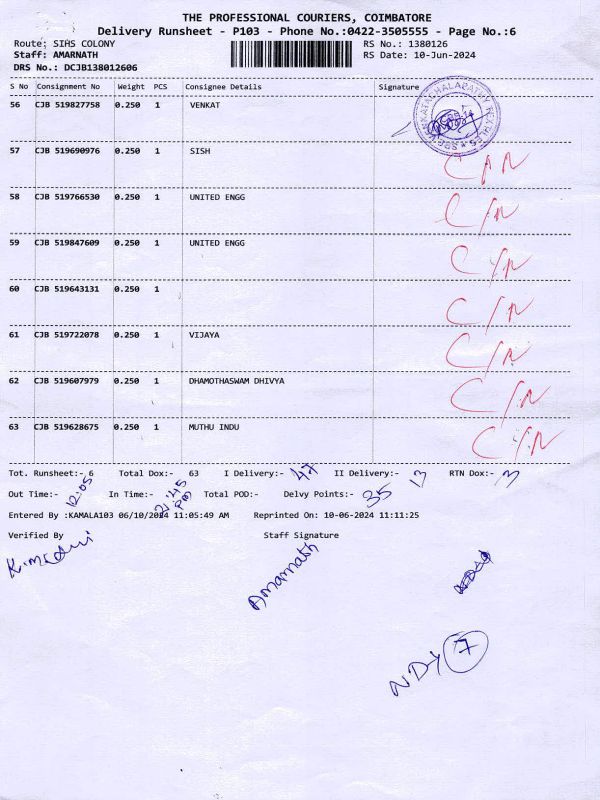 THE PROFESSIONAL COURIERS, COIMBATORE
Delivery Runsheet - P103 - Phone No.:0422-3505555 - Page No.:6
Route: SIHS COLONY RS No.: 1380126
Staff: AMARNATH RS Date: 10-Jun-2024
DRS No.: DCJB138012606
S No Consignment No Weight PCS Consignee Details Signature
56 CJB 519827758 0.250 1 VENKAT
57 CJB 519690976 0.250 1 SISH C/N
58 CJB 519766530 0.250 1 UNITED ENGG C/N
59 CJB 519847609 0.250 1 UNITED ENGG C/N
60 CJB 519643131 0.250 1 C/N
61 CJB 519722078 0.250 1 VIJAYA C/N
62 CJB 519607979 0.250 1 DHAMOTHASWAM DHIVYA C/N
63 CJB 519628675 0.250 1 MUTHU INDU C/N
Tot. Runsheet:- 6 Total Dox:- 63 I Delivery:- 47 II Delivery:- 13 RTN Dox:- 3
Out Time:- 12:05 In Time:- 21:45 PM Total POD:- Delvy Points:- 35
Entered By :KAMALA103 06/10/2024 11:05:49 AM Reprinted On: 10-06-2024 11:11:25
Verified By Staff Signature
Amarnath
NDY 7